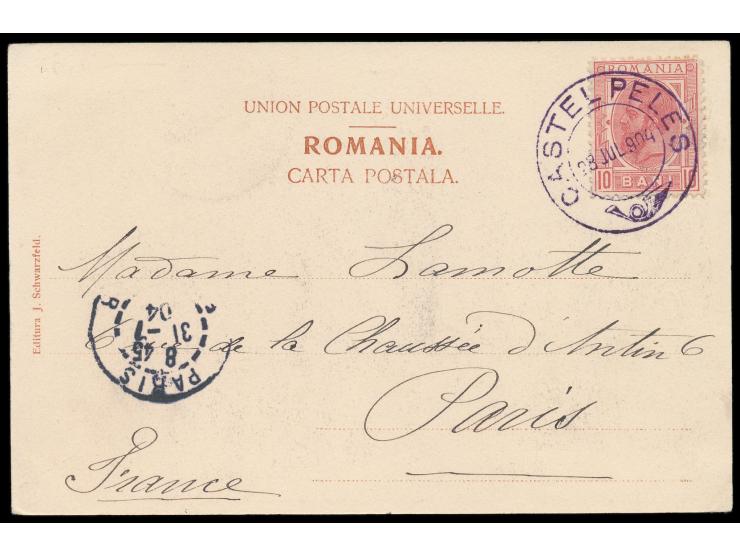 UNION POSTALE UNIVERSELLE.
ROMANIA.
CARTA POSTALA.
ROMANIA
10 BANI 10
CASTEL PELES
28 JUL 904
Madame Lamotte
6 rue de la Chaussée d'Antin 6
Paris
France
PARIS
8 45
31 - 7
04
Editura J. Schwarzfeld.